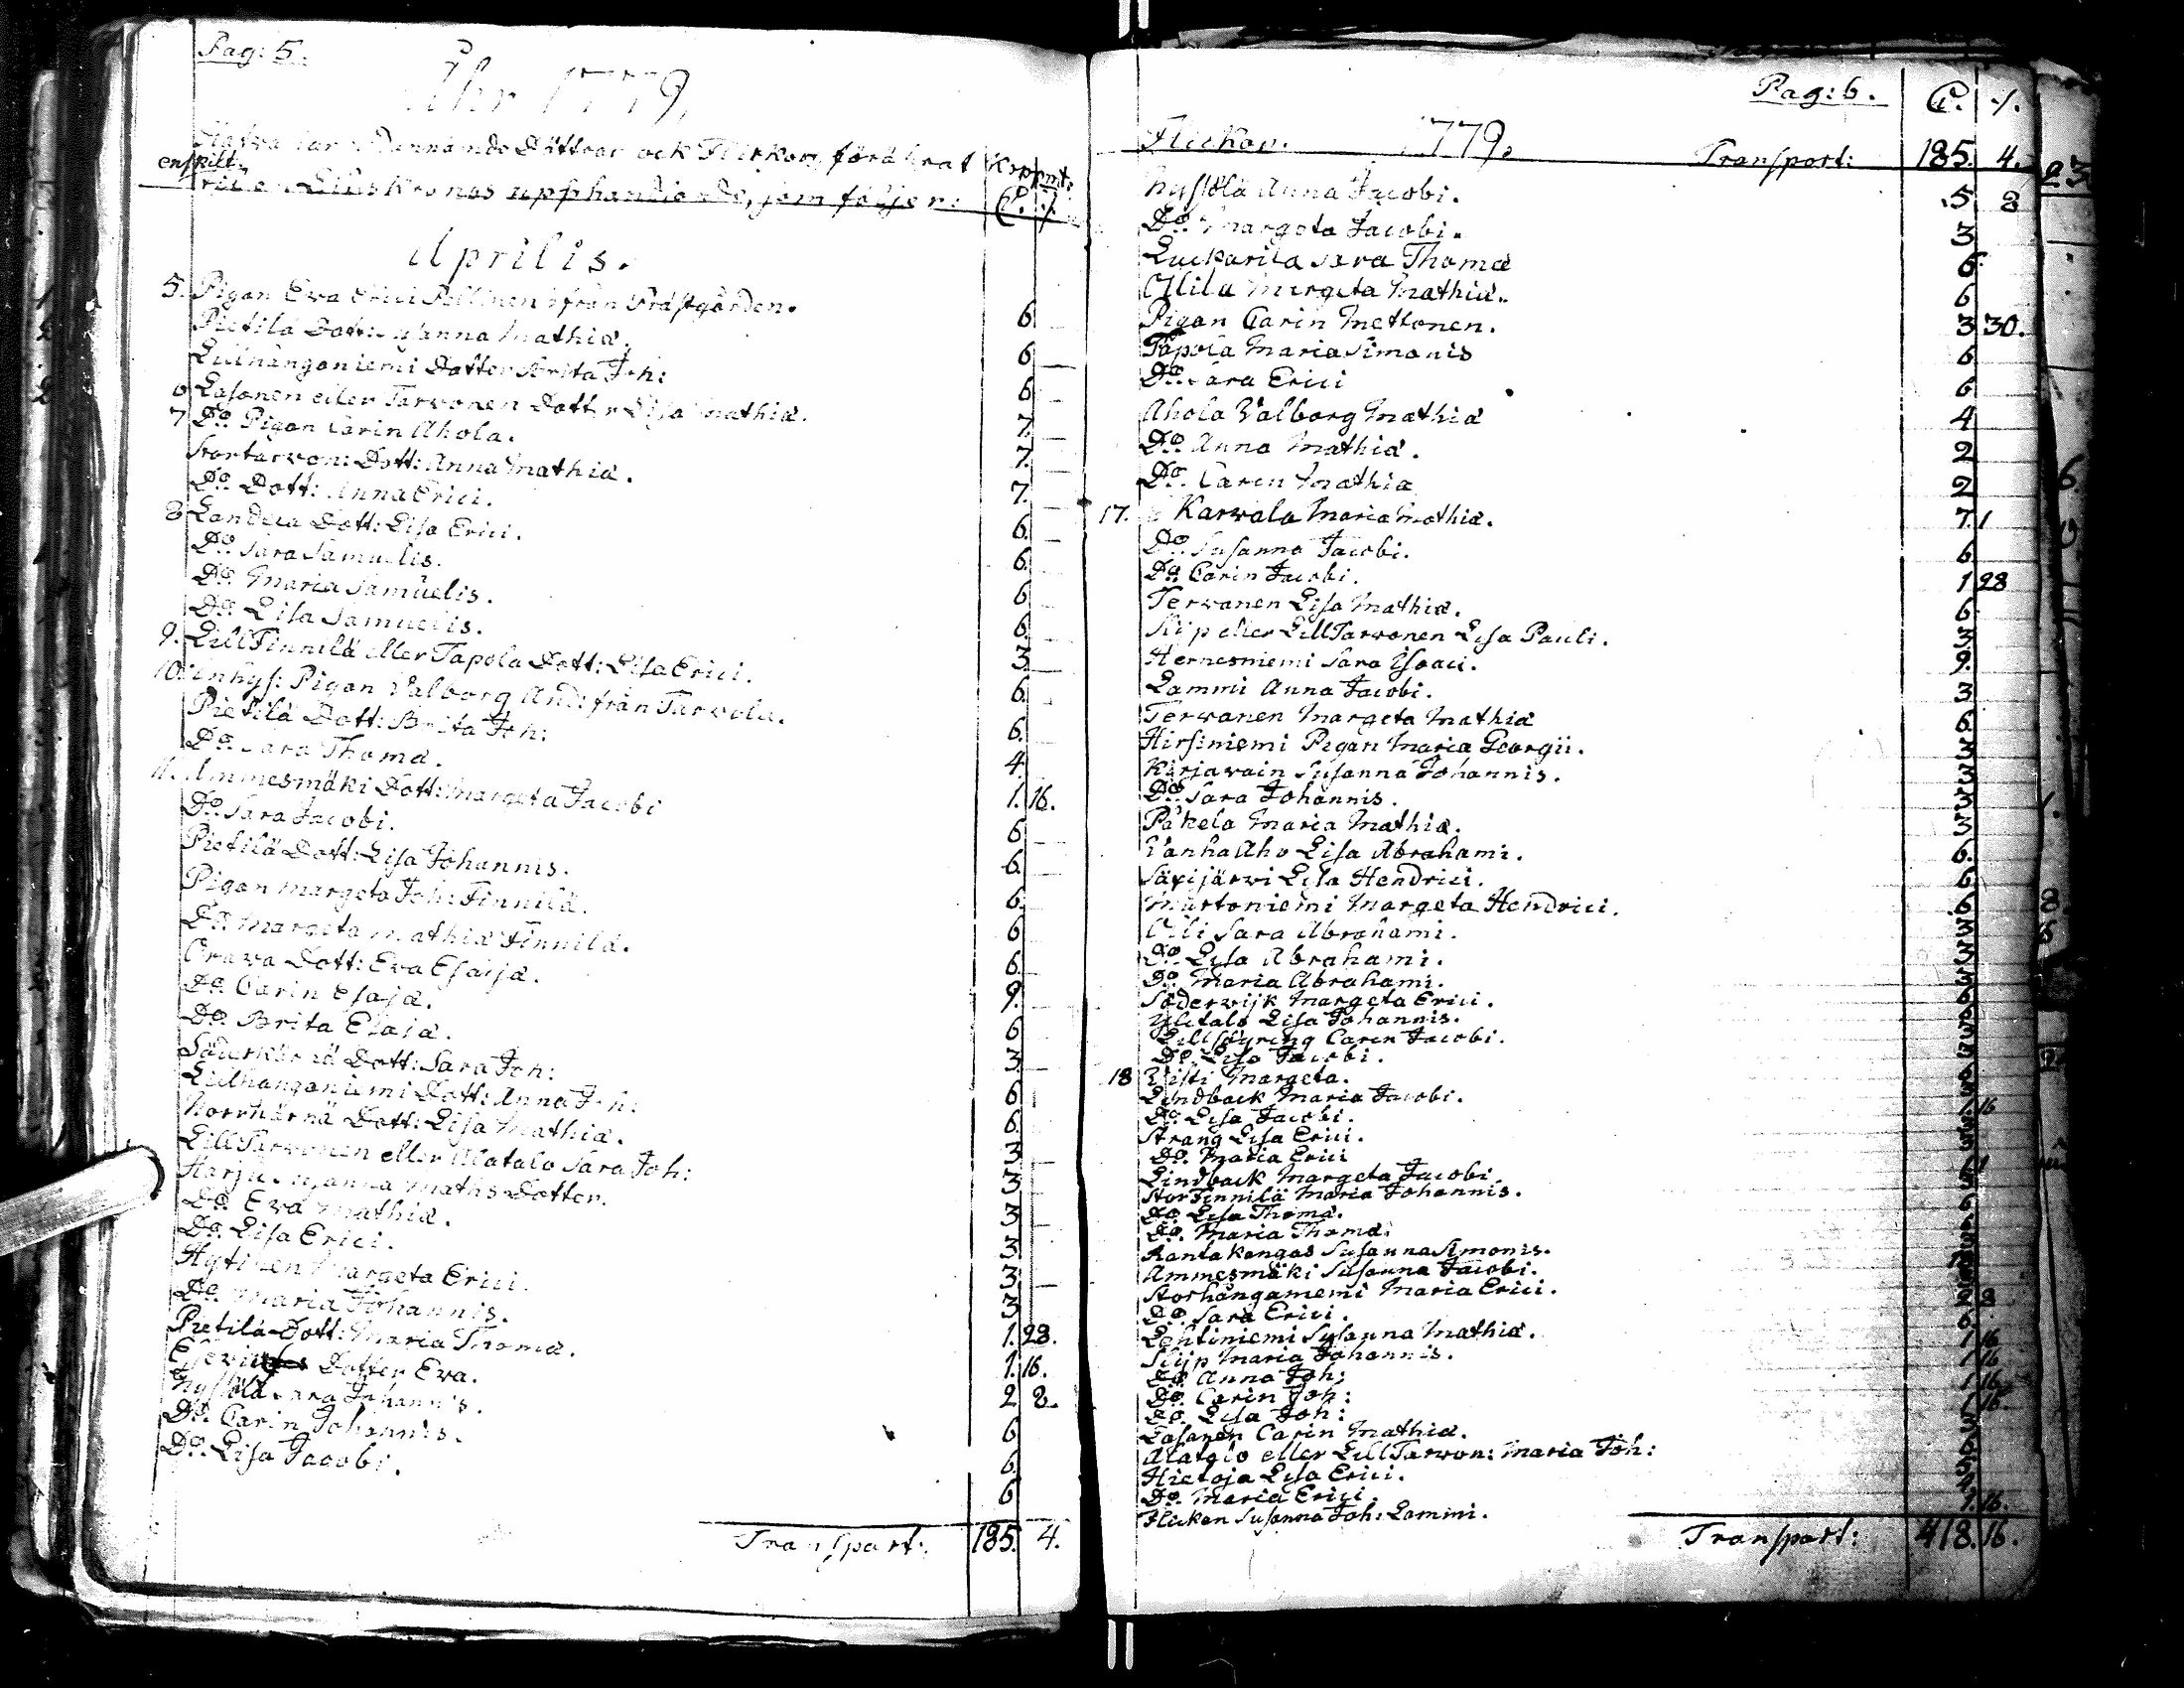 Pag: 5.
Åhr 1779,
Dättrar ock Flickor, förährat
enskilt
Kronos upphandlande, som följer: Koppmt:
D. /.
Aprilis.
5. Pigan Eva Erici Pellinen ifrån Prästgården. 6.
Pietilä Dott: Susanna Mathiæ. 6
Lillhångoniemi Dotter Brita Joh: 6
6 Lasonen eller Tarvonen Dotter Lisa Mathiæ. 7.
7 Do. Pigan Carin Ahola. 7.
Stortarvon: Dott: Anna Mathiæ. 7.
Do. Dott: Anna Erici. 6.
8 Dott: Lisa Erici. 6.
Do. Sara Samuelis. 6
Do. Maria Samuelis. 6.
Do. Lisa Samuelis. 3
9. LillFinnilä eller Tapola Dott: Lisa Erici. 6.
10. inhys: Pigan Valborg And: från Tarvola. 6.
Pietilä Dott: Brita Joh: 4.
Do. Sara Thomæ. 1. 16.
11. Ammesmäki Dott: Margeta Jacobi 6
Do. Sara Jacobi. 6.
Pietilä Dott: Lisa Johannis. 6.
Pigan Margeta Joh: Finnilä. 6
Do. Margeta Mathiæ Finnilä. 6.
Orava Dott: Eva Esaiæ. 9.
Do. Carin Esajæ. 6
Do. Brita Esaiæ. 3.
Dott: Sara Joh: 6
Lillhangoniemi Dott: Anna Joh: 6.
Dott: Lisa Mathiæ. 3
LillTarvonen eller Alatalo Sara Joh: 3
Harju Susanna Maths Dotter. 3
Do. Eva Mathiæ. 3
Do. Lisa Erici. 3.
Margeta Erici. 3
Do. Maria Johannis. 1. 28.
Pietilä Dott: Maria Thomæ. 1. 16.
Dotter Eva. 2 2.
Nystölä Sara Johannis. 6
Do. Carin Johannis. 6.
Do. Lisa Jacobi. 6
Transport: 185. 4.
Pag: 6. D. /.
Flickor. 1779. Transport: 185. 4.
Nystölä Anna Jacobi. 5 2
Do. Margeta Jacobi. 3
Luckarila Sara Thomæ 6.
Ollila Margeta Mathiæ. 6
Pigan Carin Mettonen. 3 30.
Tapola Maria Simonis 6
Do. Sara Erici 6
Ahola Valborg Mathiæ 4
Do. Anna Mathiæ. 2
Do. Carin Mathiæ 2
17. Karvala Maria Mathiæ. 7. 1
Do. Susanna Jacobi. 6
Do. Carin Jacobi. 1 28
Tervanen Lisa Mathiæ. 6
Kijp eller LillTarvonen Lisa Pauli. 3
Hernesniemi Sara Isaaci. 9.
Lammi Anna Jacobi. 3
Tervanen Margeta Mathiæ 6
Hirsiniemi Pigan Maria Georgii. 3
Kärjavain Susanna Johannis. 3
Do. Sara Johannis. 3
Päkelä Maria Mathiæ. 3
VanhaAho Lisa Abrahami. 6.
Säxijärvi Lisa Hendrici. 6
Murtoniemi Margeta Hendrici. 6
Sara Abrahami. 3
Do. Lisa Abrahami. 3
Do. Maria Abrahami. 3
Söderwijk Margeta Erici. 6
Ylitalo Lisa Johannis.
LillSöyring Carin Jacobi.
Do. Lisa Jacobi.
18 Visti Margeta.
Lindback Maria Jacobi. 1. 16
Do. Lisa Jacobi.
Strang Lisa Erici.
Do. Maria Erici
Lindback Margeta Jacobi.
StorFinnilä Maria Johannis.
Do. Lisa Thomæ.
Do. Maria Thomæ.
Rantakangas Susanna Simonis.
Ammesmäki Susanna Jacobi.
Storhånganiemi Maria Erici.
Do. Sara Erici. 6.
Lehtiniemi Susanna Mathiæ. 1 16
Kijp Maria Johannis. 1 16
Do. Anna Joh: 1 16
Do. Carin Joh: 1 16.
Do. Lisa Joh:
Lasanen Carin Mathiæ.
Alatalo eller LillTarvon: Maria Joh:
Hietoja Lisa Erici.
Do. Maria Erici.
Flickan Susanna Joh: Lammi. 1. 16.
Transport: 418. 16.